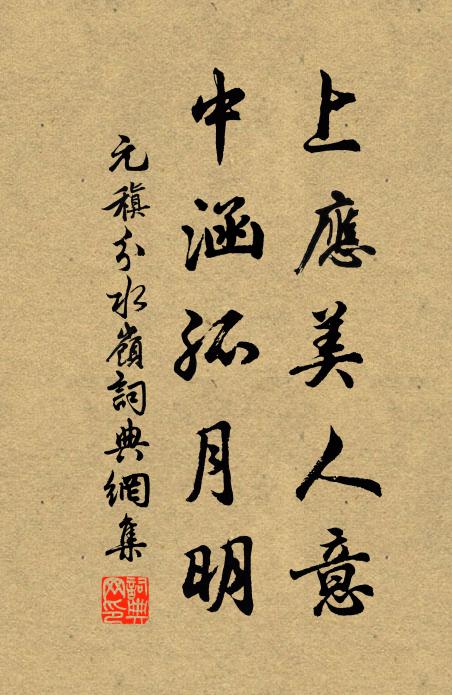 上應美人意
中涵孤月明
元稹分水嶺詞典網集
詞典網印